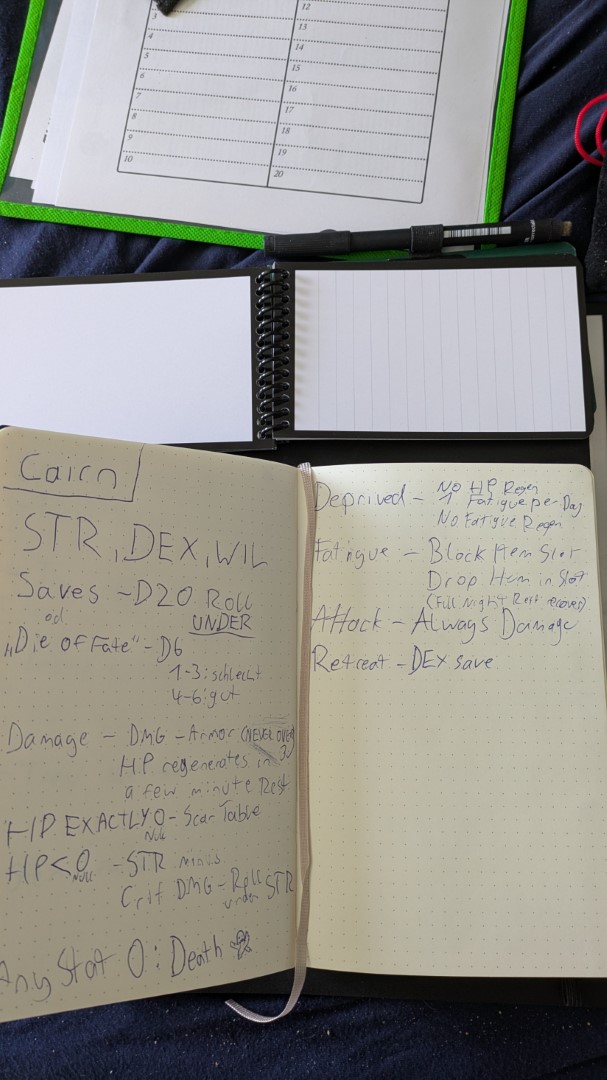 3
4
5
6
7
8
9
10
12
13
14
15
16
17
18
19
20
Cairn
STR, DEX, WIL
Saves ~ D20 Roll
UNDER
od.
"Die of Fate" - D6
1-3: schlecht
4-6: gut
Damage - DMG - Armor (NEVER OVER
3)
HP regenerates in
a few minute Rest
HP EXACTLY 0 - Scar Table
NULL
HP < 0 - STR minus
NULL
Crit DMG - Roll
under STR
Any Stat 0: Death
Deprived - No HP Regen
1 Fatigue per Day
No Fatigue Regen
Fatigue - Block Item Slot
Drop Item in Slot
(Full Night Rest recover)
Attack - Always Damage
Retreat - DEX save